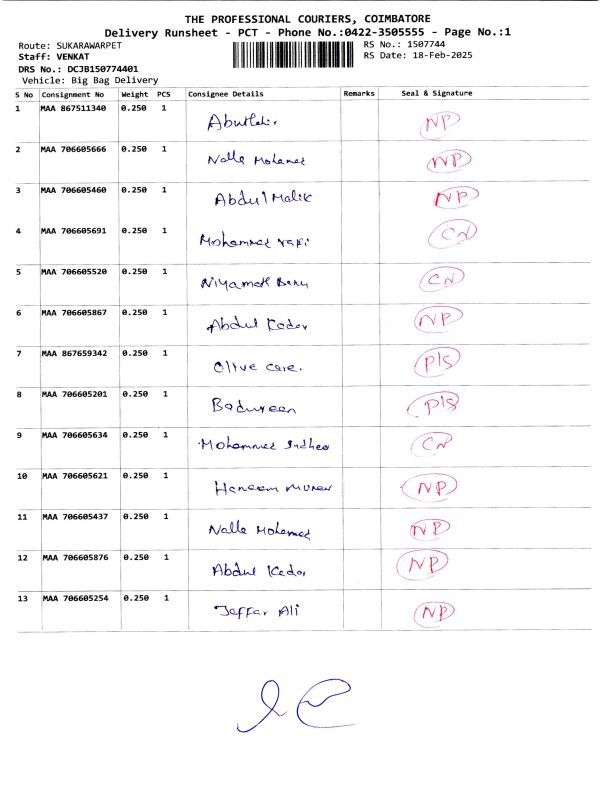 THE PROFESSIONAL COURIERS, COIMBATORE
Delivery Runsheet - PCT - Phone No.:0422-3505555 - Page No.:1
Route: SUKARAWARPET RS No.: 1507744
Staff: VENKAT RS Date: 18-Feb-2025
DRS No.: DCJB150774401
Vehicle: Big Bag Delivery
S No Consignment No Weight PCS Consignee Details Remarks Seal & Signature
1 MAA 867511340 0.250 1 NP
2 MAA 706605666 0.250 1 Nalla Mohamed NP
3 MAA 706605460 0.250 1 Abdul Malik NP
4 MAA 706605691 0.250 1 Mohammed Rafi CN
5 MAA 706605520 0.250 1 CN
6 MAA 706605867 0.250 1 Abdul Kader NP
7 MAA 867659342 0.250 1 Olive care. P/S
8 MAA 706605201 0.250 1 P/S
9 MAA 706605634 0.250 1 Mohammed CN
10 MAA 706605621 0.250 1 NP
11 MAA 706605437 0.250 1 Nalla Mohamed NP
12 MAA 706605876 0.250 1 Abdul Kader NP
13 MAA 706605254 0.250 1 Jaffar Ali NP